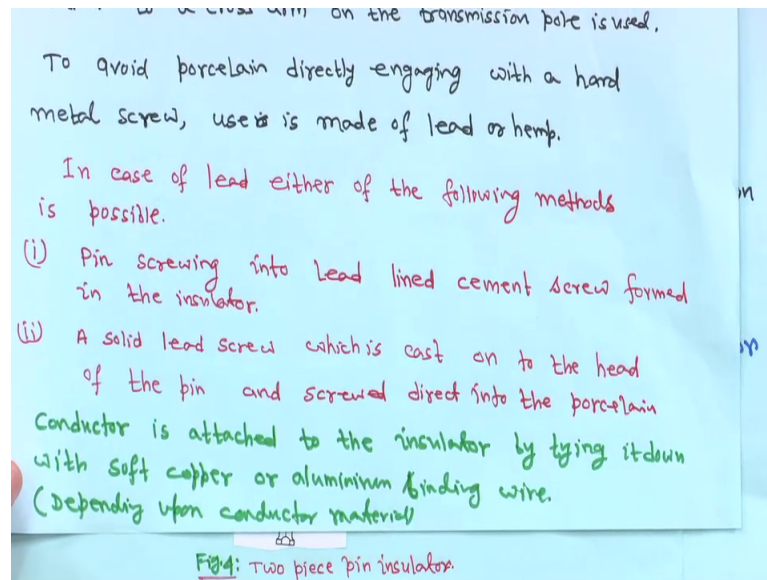 to a cross arm on the transmission pole is used.
To avoid porcelain directly engaging with a hard
metal screw, use is made of lead or hemp.
In case of lead either of the following methods
is possible.
(i) Pin screwing into Lead lined cement screw formed
in the insulator.
(ii) A solid lead screw which is cast on to the head
of the pin and screwed direct into the porcelain
Conductor is attached to the insulator by tying it down
with soft copper or aluminium binding wire.
(Depending upon conductor material)
Fig.4: Two piece pin insulator.